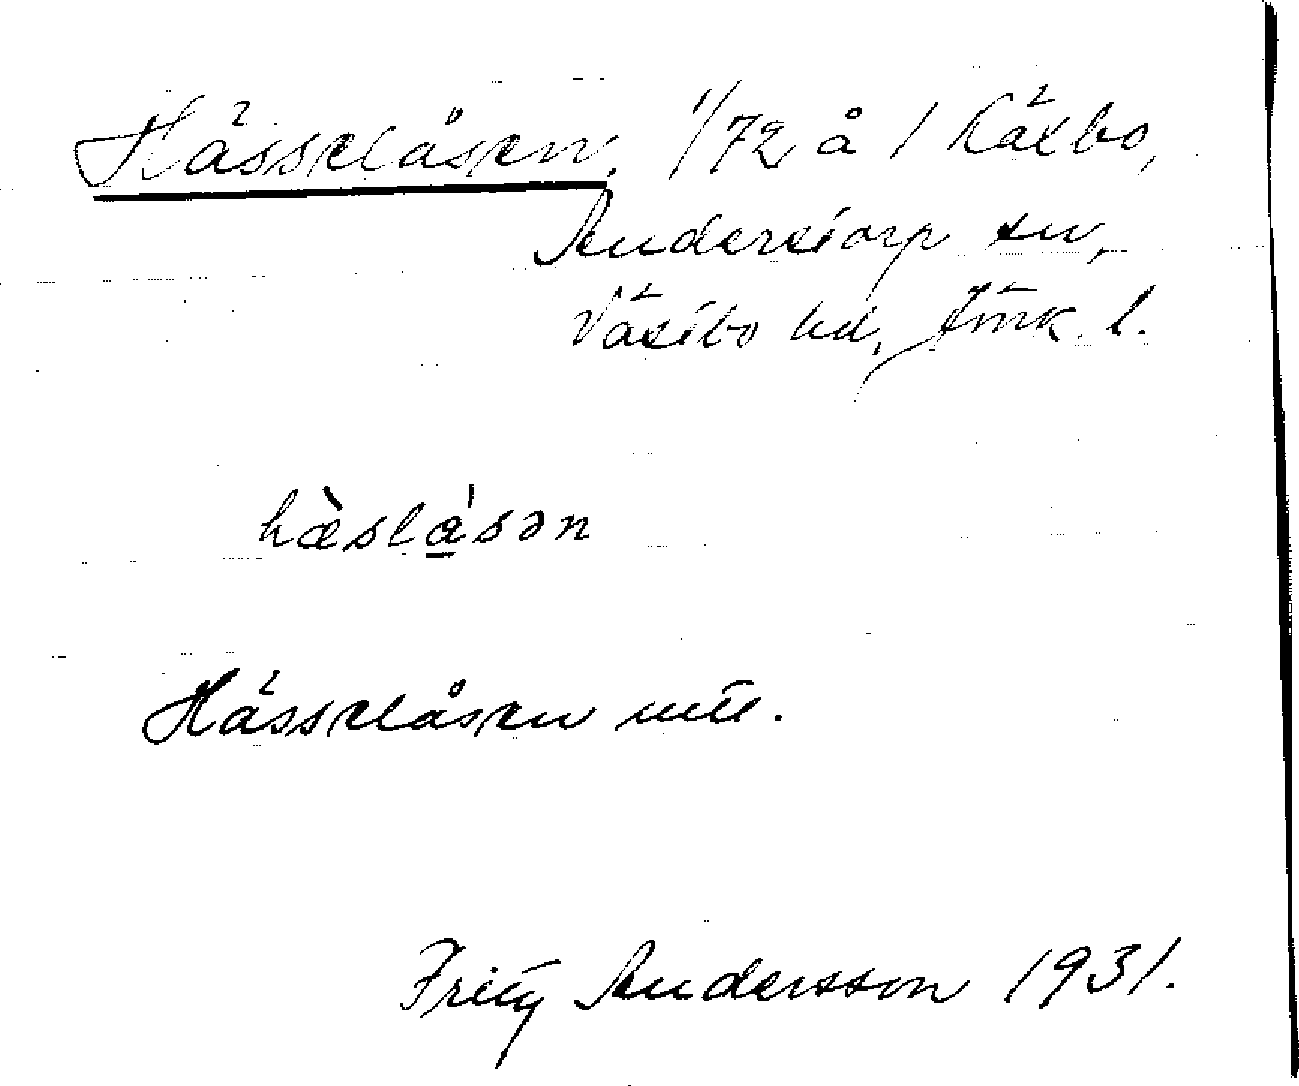 Hässelåsen, 1/72 å 1 Käxbo,
Anderstorp sn,
Västbo hd, Jönk. l.
hæ̀slα̲̍sən
Hässelåsen mtl.
Fritz Andersson 1931.